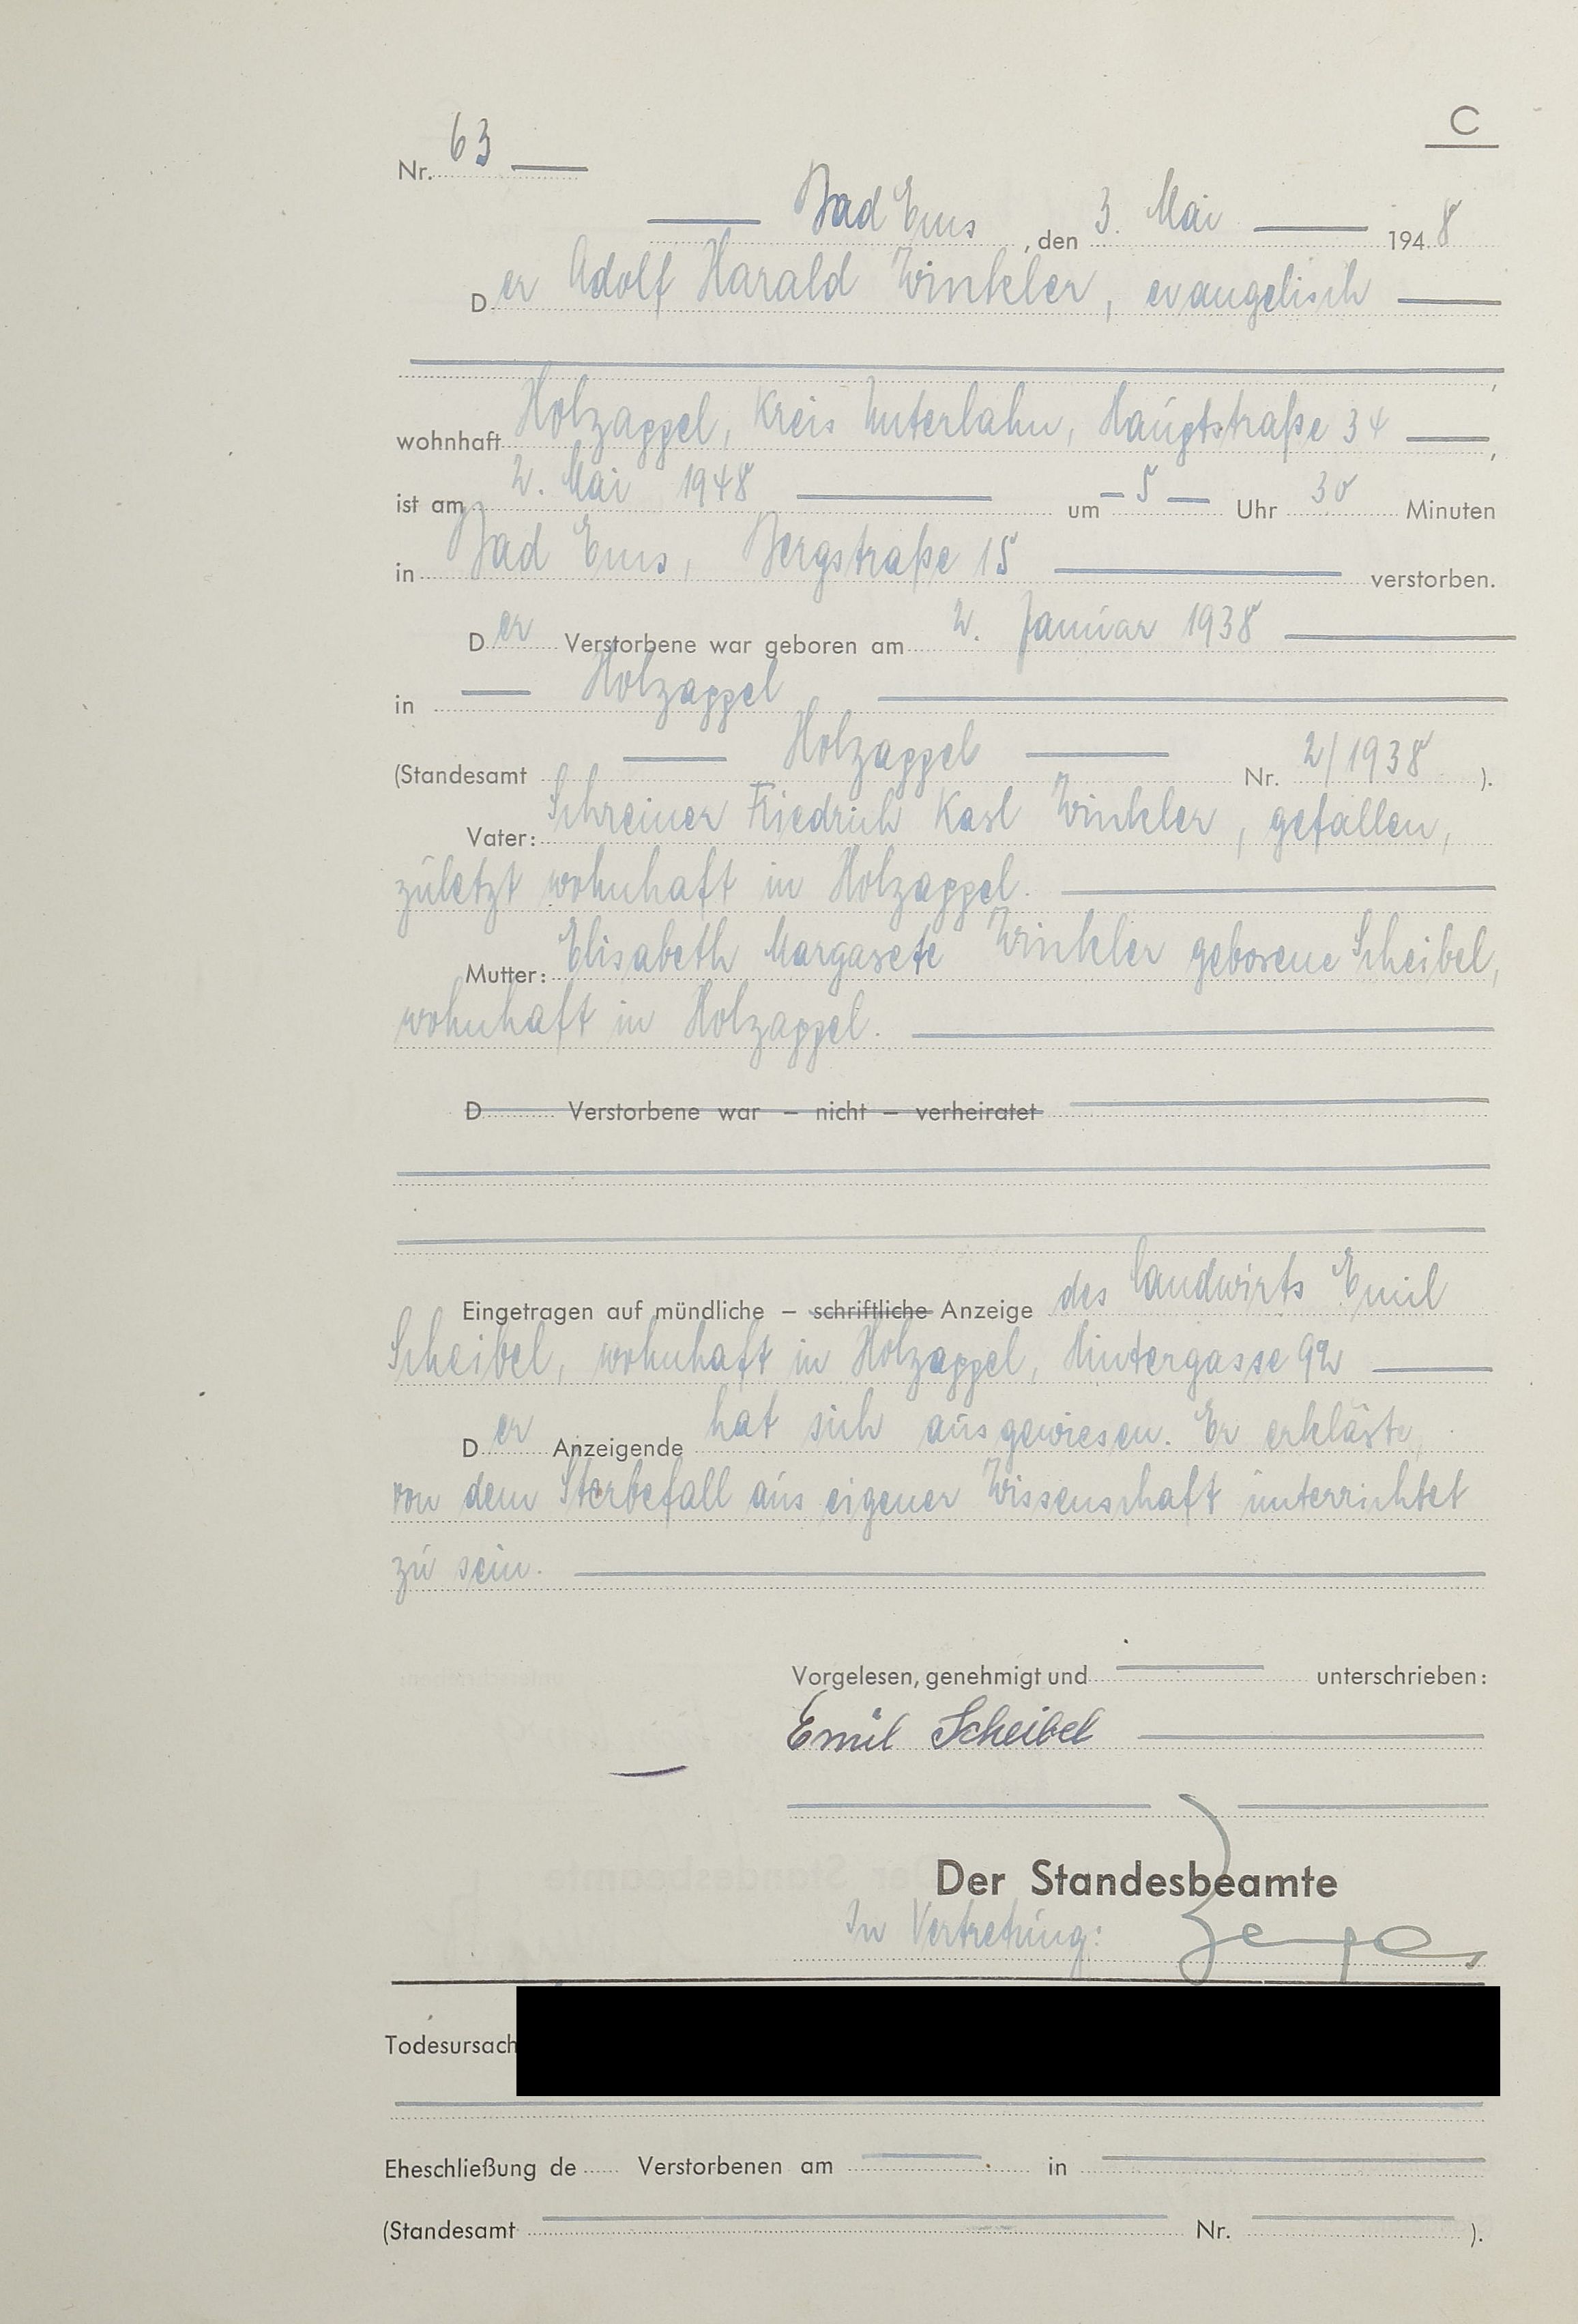 C
Nr. 63
Bad Ems, den 3. Mai 1948
Der Adolf Harald Winkler, evangelisch
,
wohnhaft Holzappel, Kreis Unterlahn, Hauptstraße 34,
ist am 2. Mai 1948 um 5 Uhr 30 Minuten
in Bad Ems, Bergstraße 15 verstorben.
Der Verstorbene war geboren am 2. Januar 1938
in Holzappel
(Standesamt Holzappel Nr. 2/1938).
Vater: Schreiner Friedrich Karl Winkler, gefallen,
zuletzt wohnhaft in Holzappel.
Mutter: Elisabeth Margarete Winkler geborene Scheibel,
wohnhaft in Holzappel.
D Verstorbene war – nicht – verheiratet
Eingetragen auf mündliche – schriftliche Anzeige des Landwirts Emil
Scheibel, wohnhaft in Holzappel, Hintergasse 92
Der Anzeigende hat sich ausgewiesen. Er erklärte,
von dem Sterbefall aus eigener Wissenschaft unterrichtet
zu sein.
Vorgelesen, genehmigt und unterschrieben:
Emil Scheibel
Der Standesbeamte
In Vertretung:
Todesursach
Eheschließung de Verstorbenen am in
(Standesamt Nr. ).